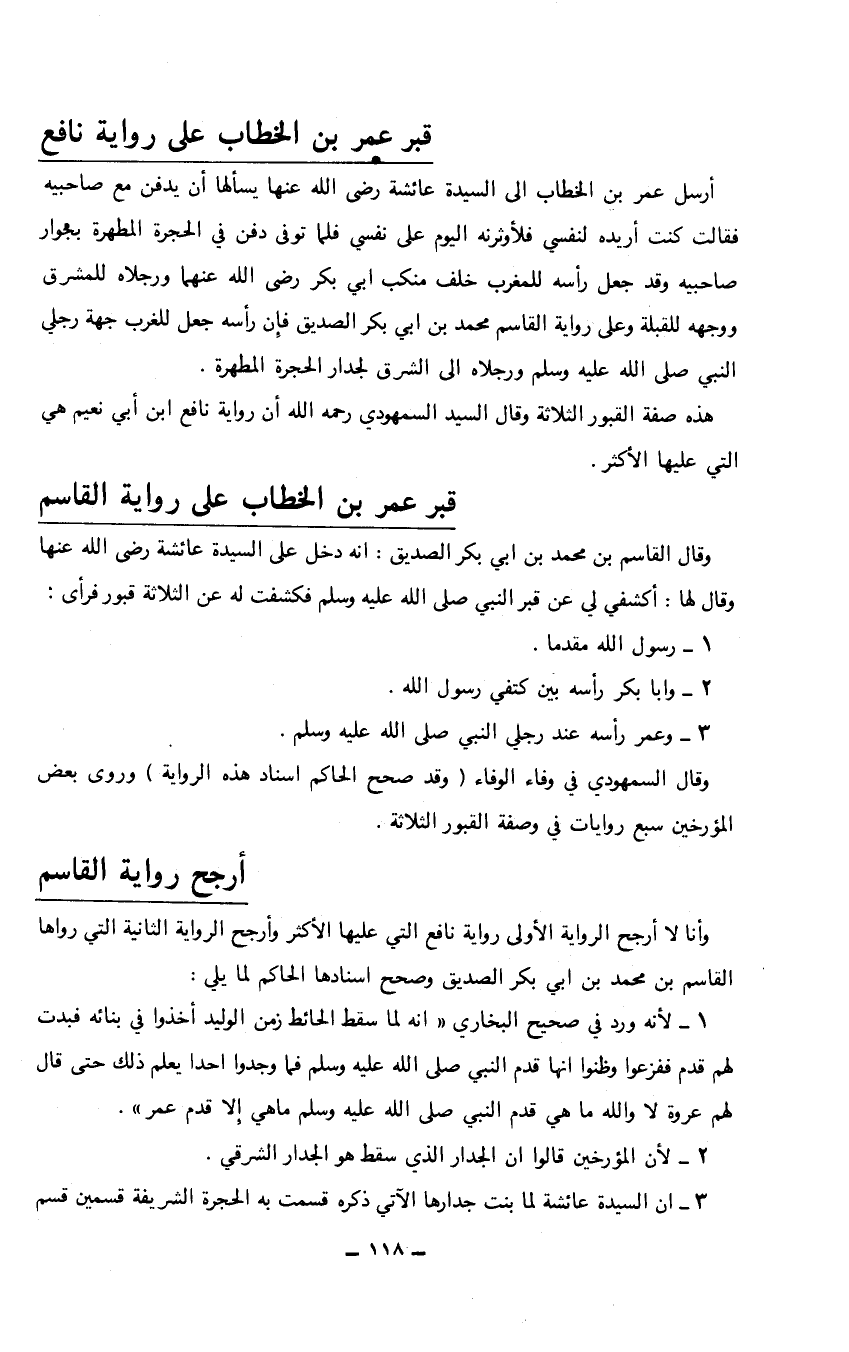 قبر عمر بن الخطاب على رواية نافع
أرسل عمر بن الخطاب الى السيدة عائشة رضى الله عنها يسألها أن يدفن مع صاحبيه
فقالت كنت أريده لنفسي فلأوثرنه اليوم على نفسي فلما توفى دفن في الحجرة المطهرة بجوار
صاحبيه وقد جعل رأسه للمغرب خلف منكب ابي بكر رضى الله عنهما ورجلاه للمشرق
ووجهه للقبلة وعلى رواية القاسم محمد بن ابي بكر الصديق فإن رأسه جعل للغرب جهة رجلي
النبي صلى الله عليه وسلم ورجلاه الى الشرق لجدار الحجرة المطهرة .
هذه صفة القبور الثلاثة وقال السيد السمهودي رحمه الله أن رواية نافع ابن أبي نعيم هي
التي عليها الأكثر .
قبر عمر بن الخطاب على رواية القاسم
وقال القاسم بن محمد بن ابي بكر الصديق : انه دخل على السيدة عائشة رضى الله عنها
وقال لها : أكشفي لي عن قبر النبي صلى الله عليه وسلم فكشفت له عن الثلاثة قبور فرأى :
١ ـ رسول الله مقدما .
٢ ـ وابا بكر رأسه بين كتفي رسول الله .
٣ ـ وعمر رأسه عند رجلي النبي صلى الله عليه وسلم .
وقال السمهودي في وفاء الوفاء ( وقد صحح الحاكم اسناد هذه الرواية ) وروى بعض
المؤرخين سبع روايات في وصفة القبور الثلاثة .
أرجح رواية القاسم
وأنا لا أرجح الرواية الأولى رواية نافع التي عليها الأكثر وأرجح الرواية الثانية التي رواها
القاسم بن محمد بن ابي بكر الصديق وصحح اسنادها الحاكم لما يلي :
١ ـ لأنه ورد في صحيح البخاري « انه لما سقط الحائط زمن الوليد أخذوا في بنائه فبدت
لهم قدم ففزعوا وظنوا انها قدم النبي صلى الله عليه وسلم فما وجدوا احدا يعلم ذلك حتى قال
لهم عروة لا والله ما هي قدم النبي صلى الله عليه وسلم ماهي إلا قدم عمر » .
٢ ـ لأن المؤرخين قالوا ان الجدار الذي سقط هو الجدار الشرقي .
٣ ـ ان السيدة عائشة لما بنت جدارها الآتي ذكره قسمت به الحجرة الشريفة قسمين قسم
ـ ١١٨ ـ